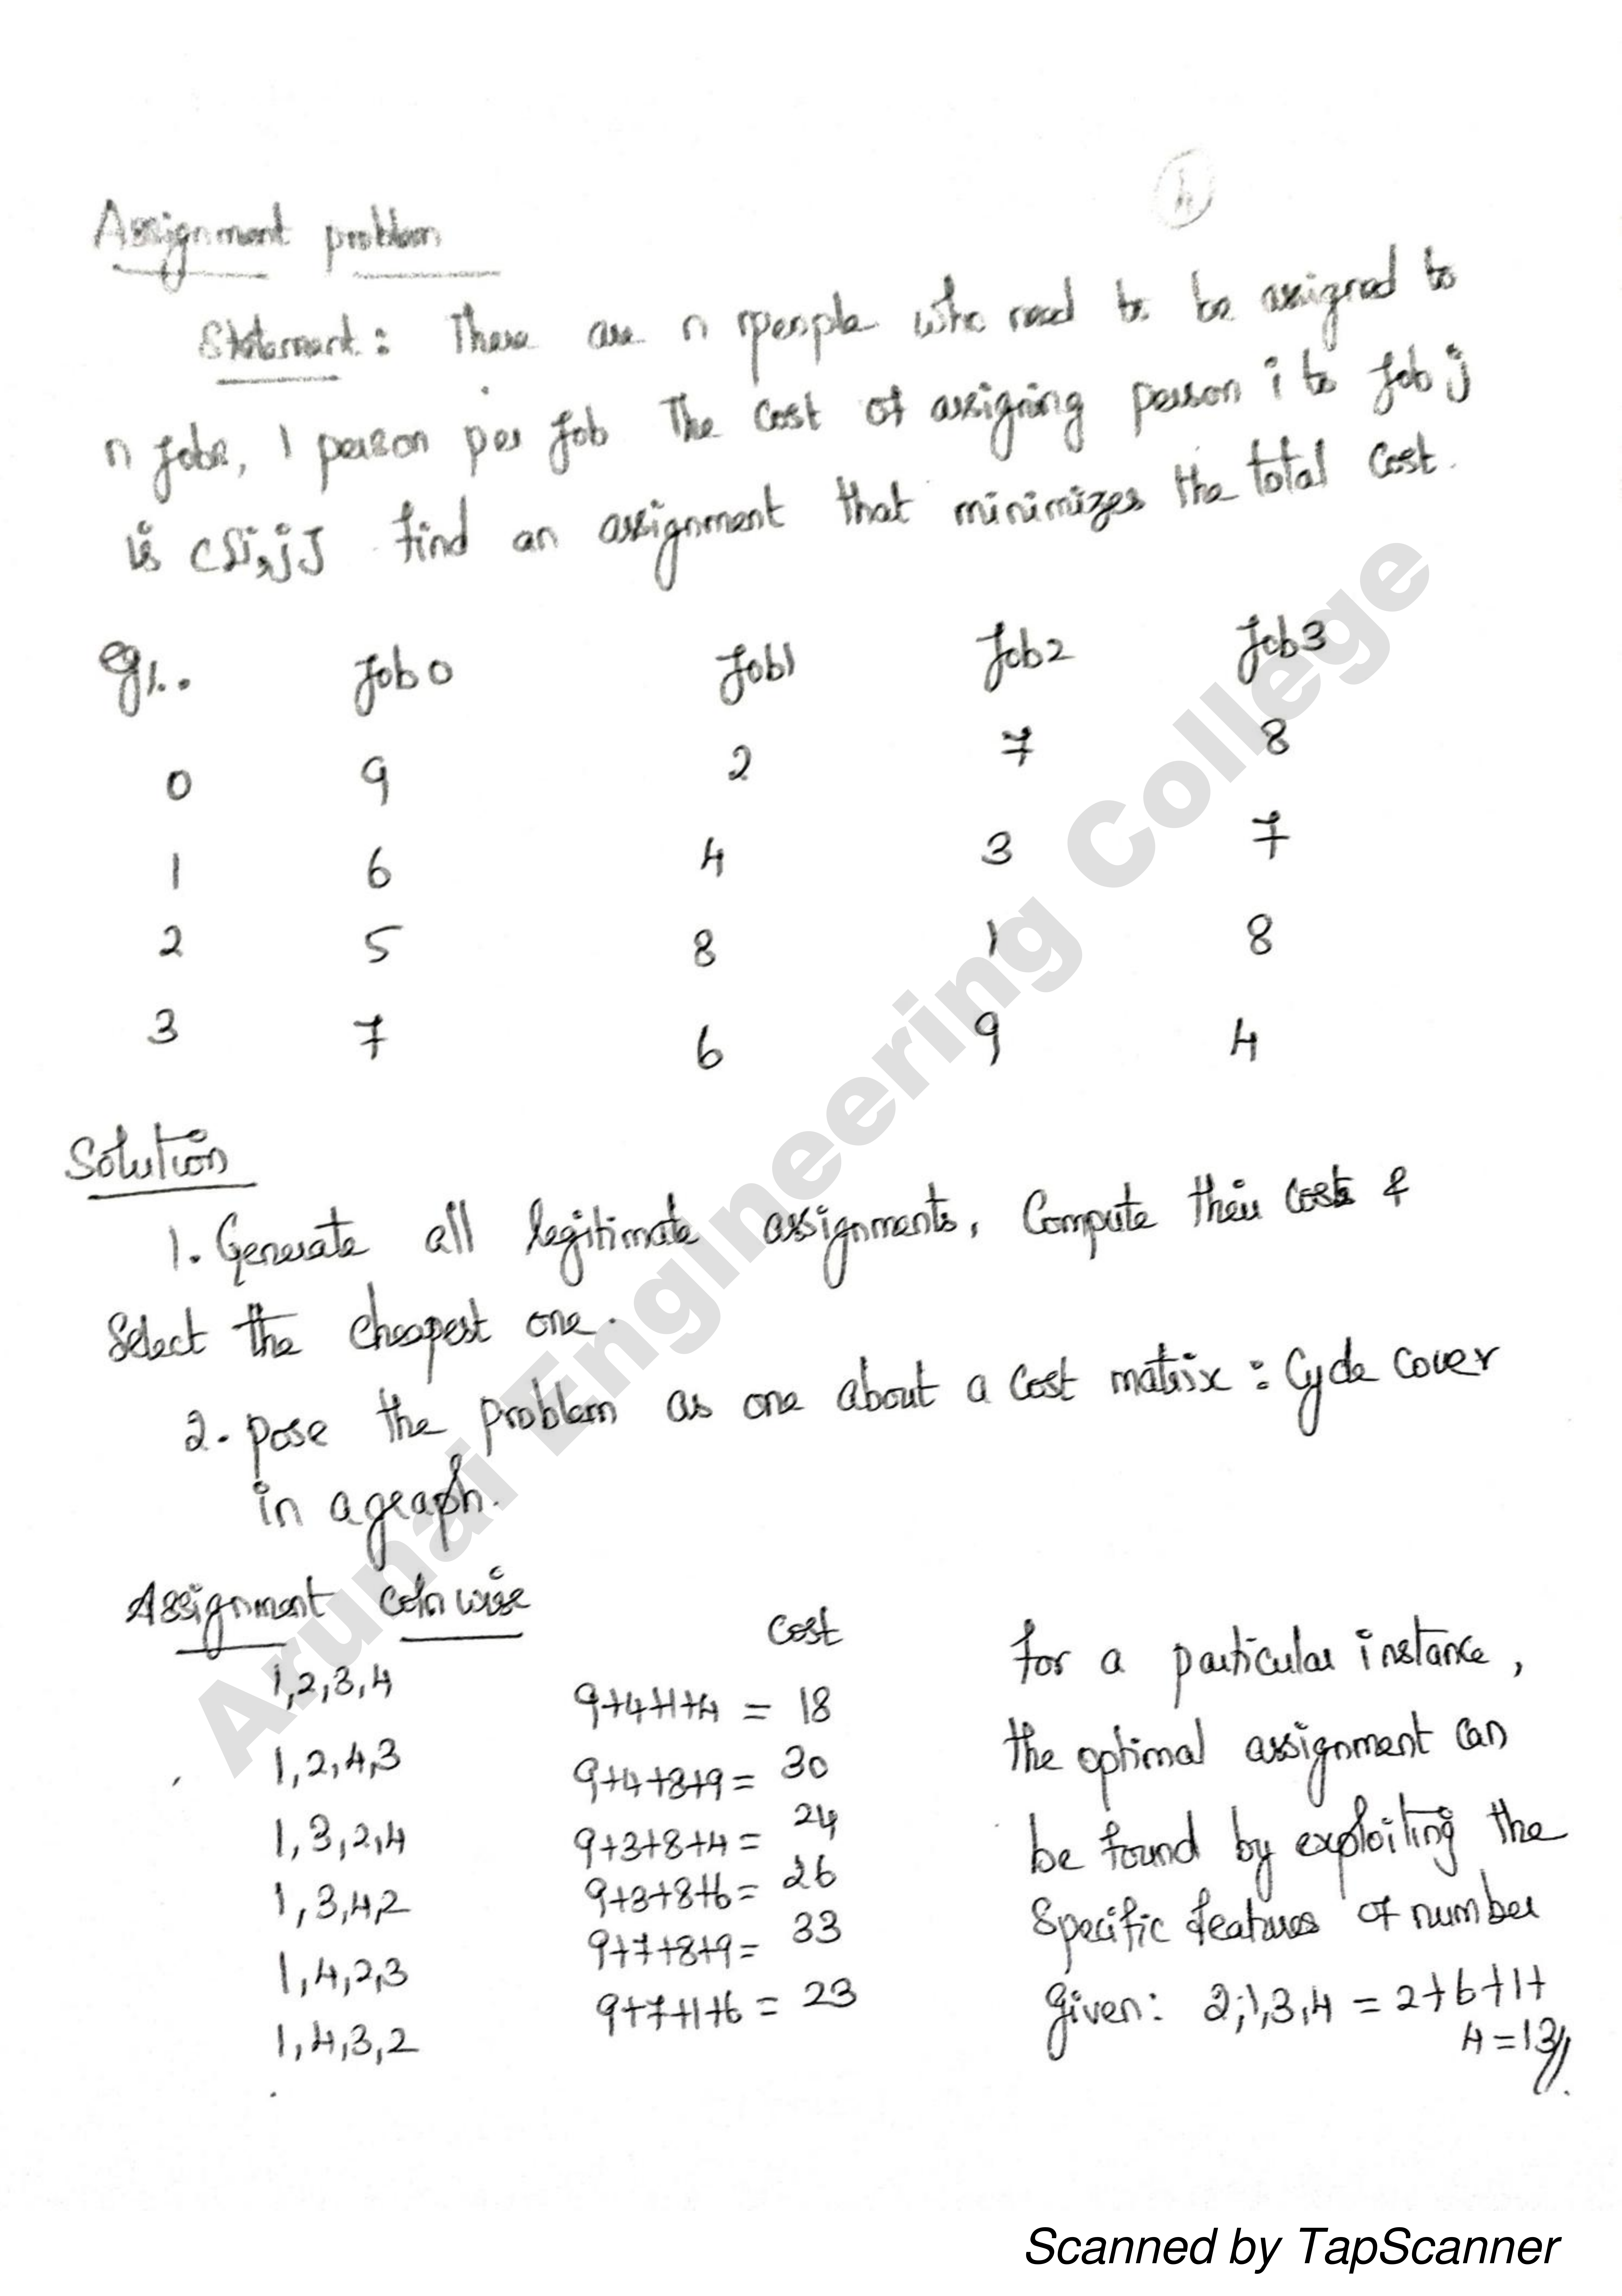 4
Assignment problem
Statement: There are n rpeople who need to be assigned to
n jobs, 1 person per job The cost of assigning person i to job j
is c[i,j] find an assignment that minimizes the total cost.
eg:. Job 0 Job1 Job2 Job3
0 9 2 7 8
1 6 4 3 7
2 5 8 1 8
3 7 6 9 4
Solution
1. Generate all legitimate assignments, Compute their costs &
Select the cheapest one.
2. pose the problem as one about a cost matrix : Cycle cover
in a graph.
Assignment coln wise Cost
1,2,3,4 9+4+1+4 = 18
1,2,4,3 9+4+8+9 = 30
1,3,2,4 9+3+8+4 = 24
1,3,4,2 9+3+8+6 = 26
1,4,2,3 9+7+8+9 = 33
1,4,3,2 9+7+1+6 = 23
for a particular instance,
the optimal assignment can
be found by exploiting the
Specific features of number
given: 2,1,3,4 = 2+6+1+
4 = 13//.
Arunai Engineering College
Scanned by TapScanner